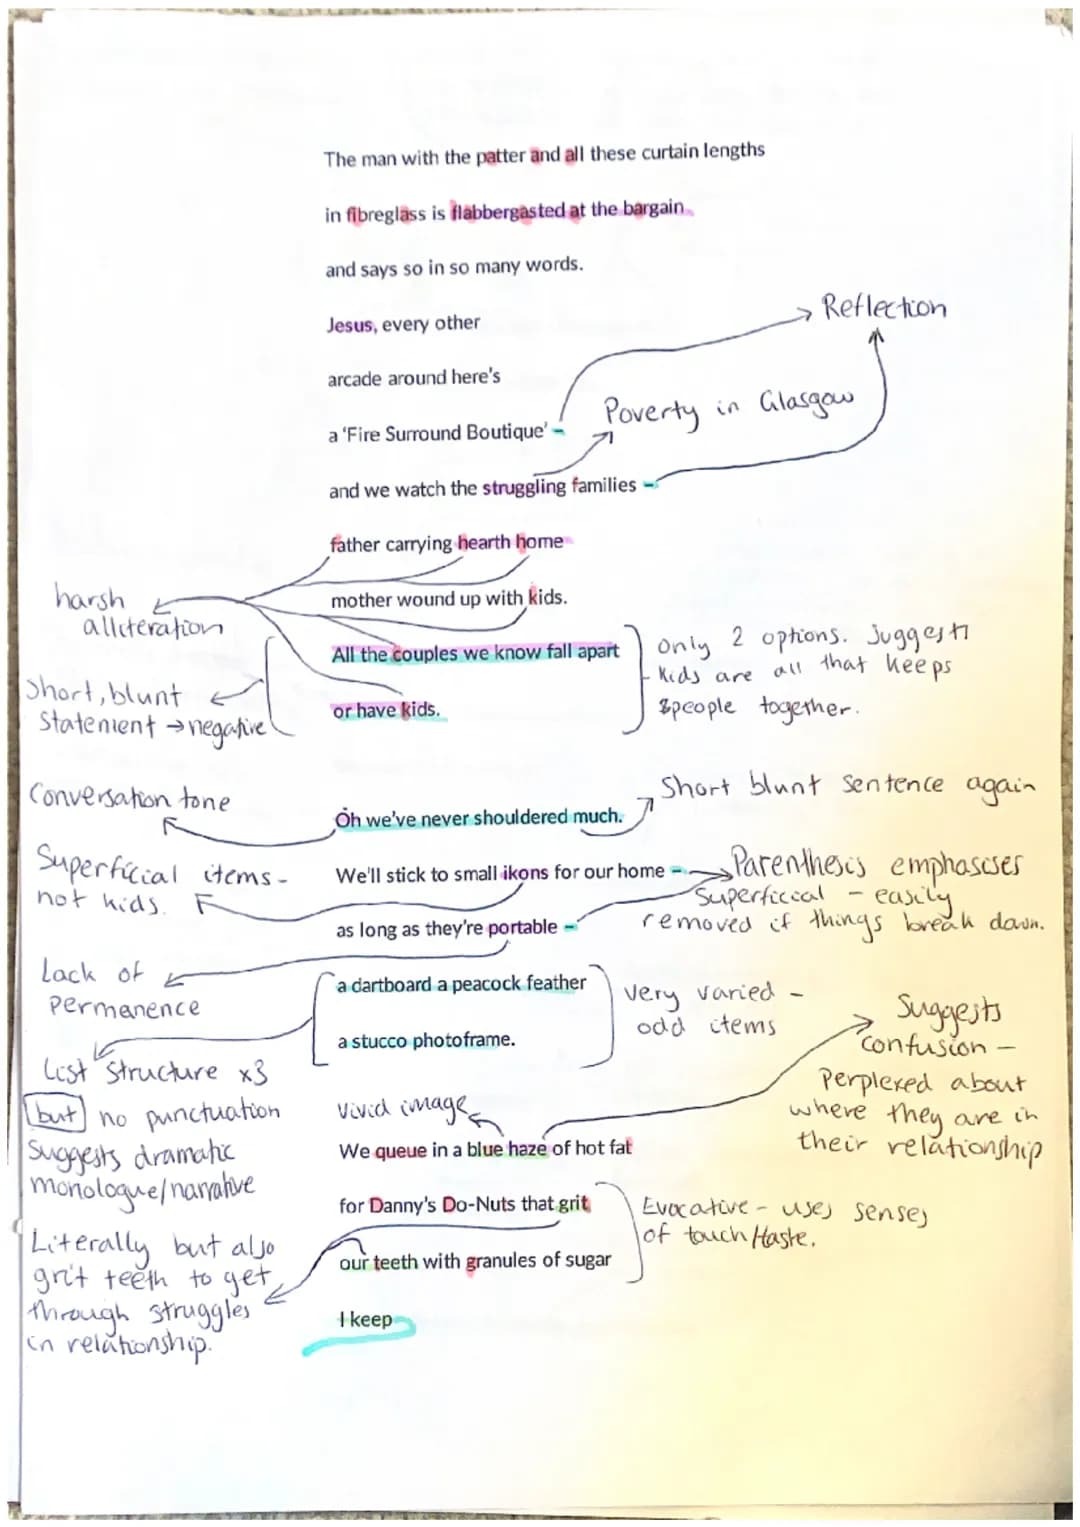 The man with the patter and all these curtain lengths
in fibreglass is flabbergasted at the bargain
and says so in so many words.
Jesus, every other
Reflection
arcade around here's
Poverty in Glasgow
a 'Fire Surround Boutique' –
and we watch the struggling families –
father carrying hearth home
mother wound up with kids.
harsh
alliteration
All the couples we know fall apart
or have kids.
Only 2 options. Suggests
kids are all that keeps
people together.
Short, blunt
Statement → negative
Conversation tone
Short blunt sentence again
Oh we've never shouldered much.
Superficial items -
not kids.
We'll stick to small ikons for our home –
Parenthesis emphasises
Superficial - easily
removed if things break down.
as long as they're portable –
Lack of
permanence
a dartboard a peacock feather
a stucco photoframe.
very varied -
odd items
List structure x3
but no punctuation
suggests dramatic
monologue/narrative
Suggests
confusion -
Perplexed about
where they are in
their relationship
Vivid image
We queue in a blue haze of hot fat
for Danny's Do-Nuts that grit
our teeth with granules of sugar
Evocative - uses senses
of touch/taste.
Literally but also
grit teeth to get
through struggles
in relationship.
I keep